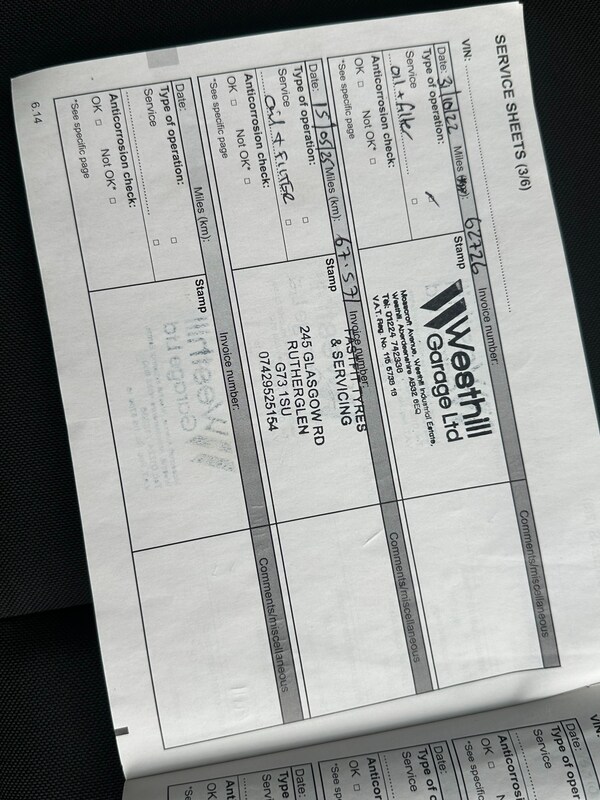 SERVICE SHEETS (3/6)
VIN:
Date: 31/10/22 Miles (km): 62726 Invoice number: Comments/miscellaneous
Type of operation:
Service
oil + filter
Anticorrosion check:
OK Not OK*
*See specific page
Stamp
Westhill
Garage Ltd
Mosscroft Avenue, Westhill Industrial Estate,
Westhill, Aberdeenshire AB32 6EQ
Tel: 01224 742338
V.A.T. Reg. No. 116 6738 18
Date: 15/05/25 Miles (km): 67.571 Invoice number: Comments/miscellaneous
Type of operation:
Service
OIL + FILTER
Anticorrosion check:
OK Not OK*
*See specific page
Stamp
FAST FIT TYRES
& SERVICING
245 GLASGOW RD
RUTHERGLEN
G73 1SU
07429525154
Date: Miles (km): Invoice number: Comments/miscellaneous
Type of operation:
Service
Anticorrosion check:
OK Not OK*
*See specific page
Stamp
6.14
VIN:
Date:
Type of oper
Service
Anticorros
OK
*See specific
Date:
Type of
Service
Anticor
OK
*See spe
Date:
Type
Servi
Ant
*Se